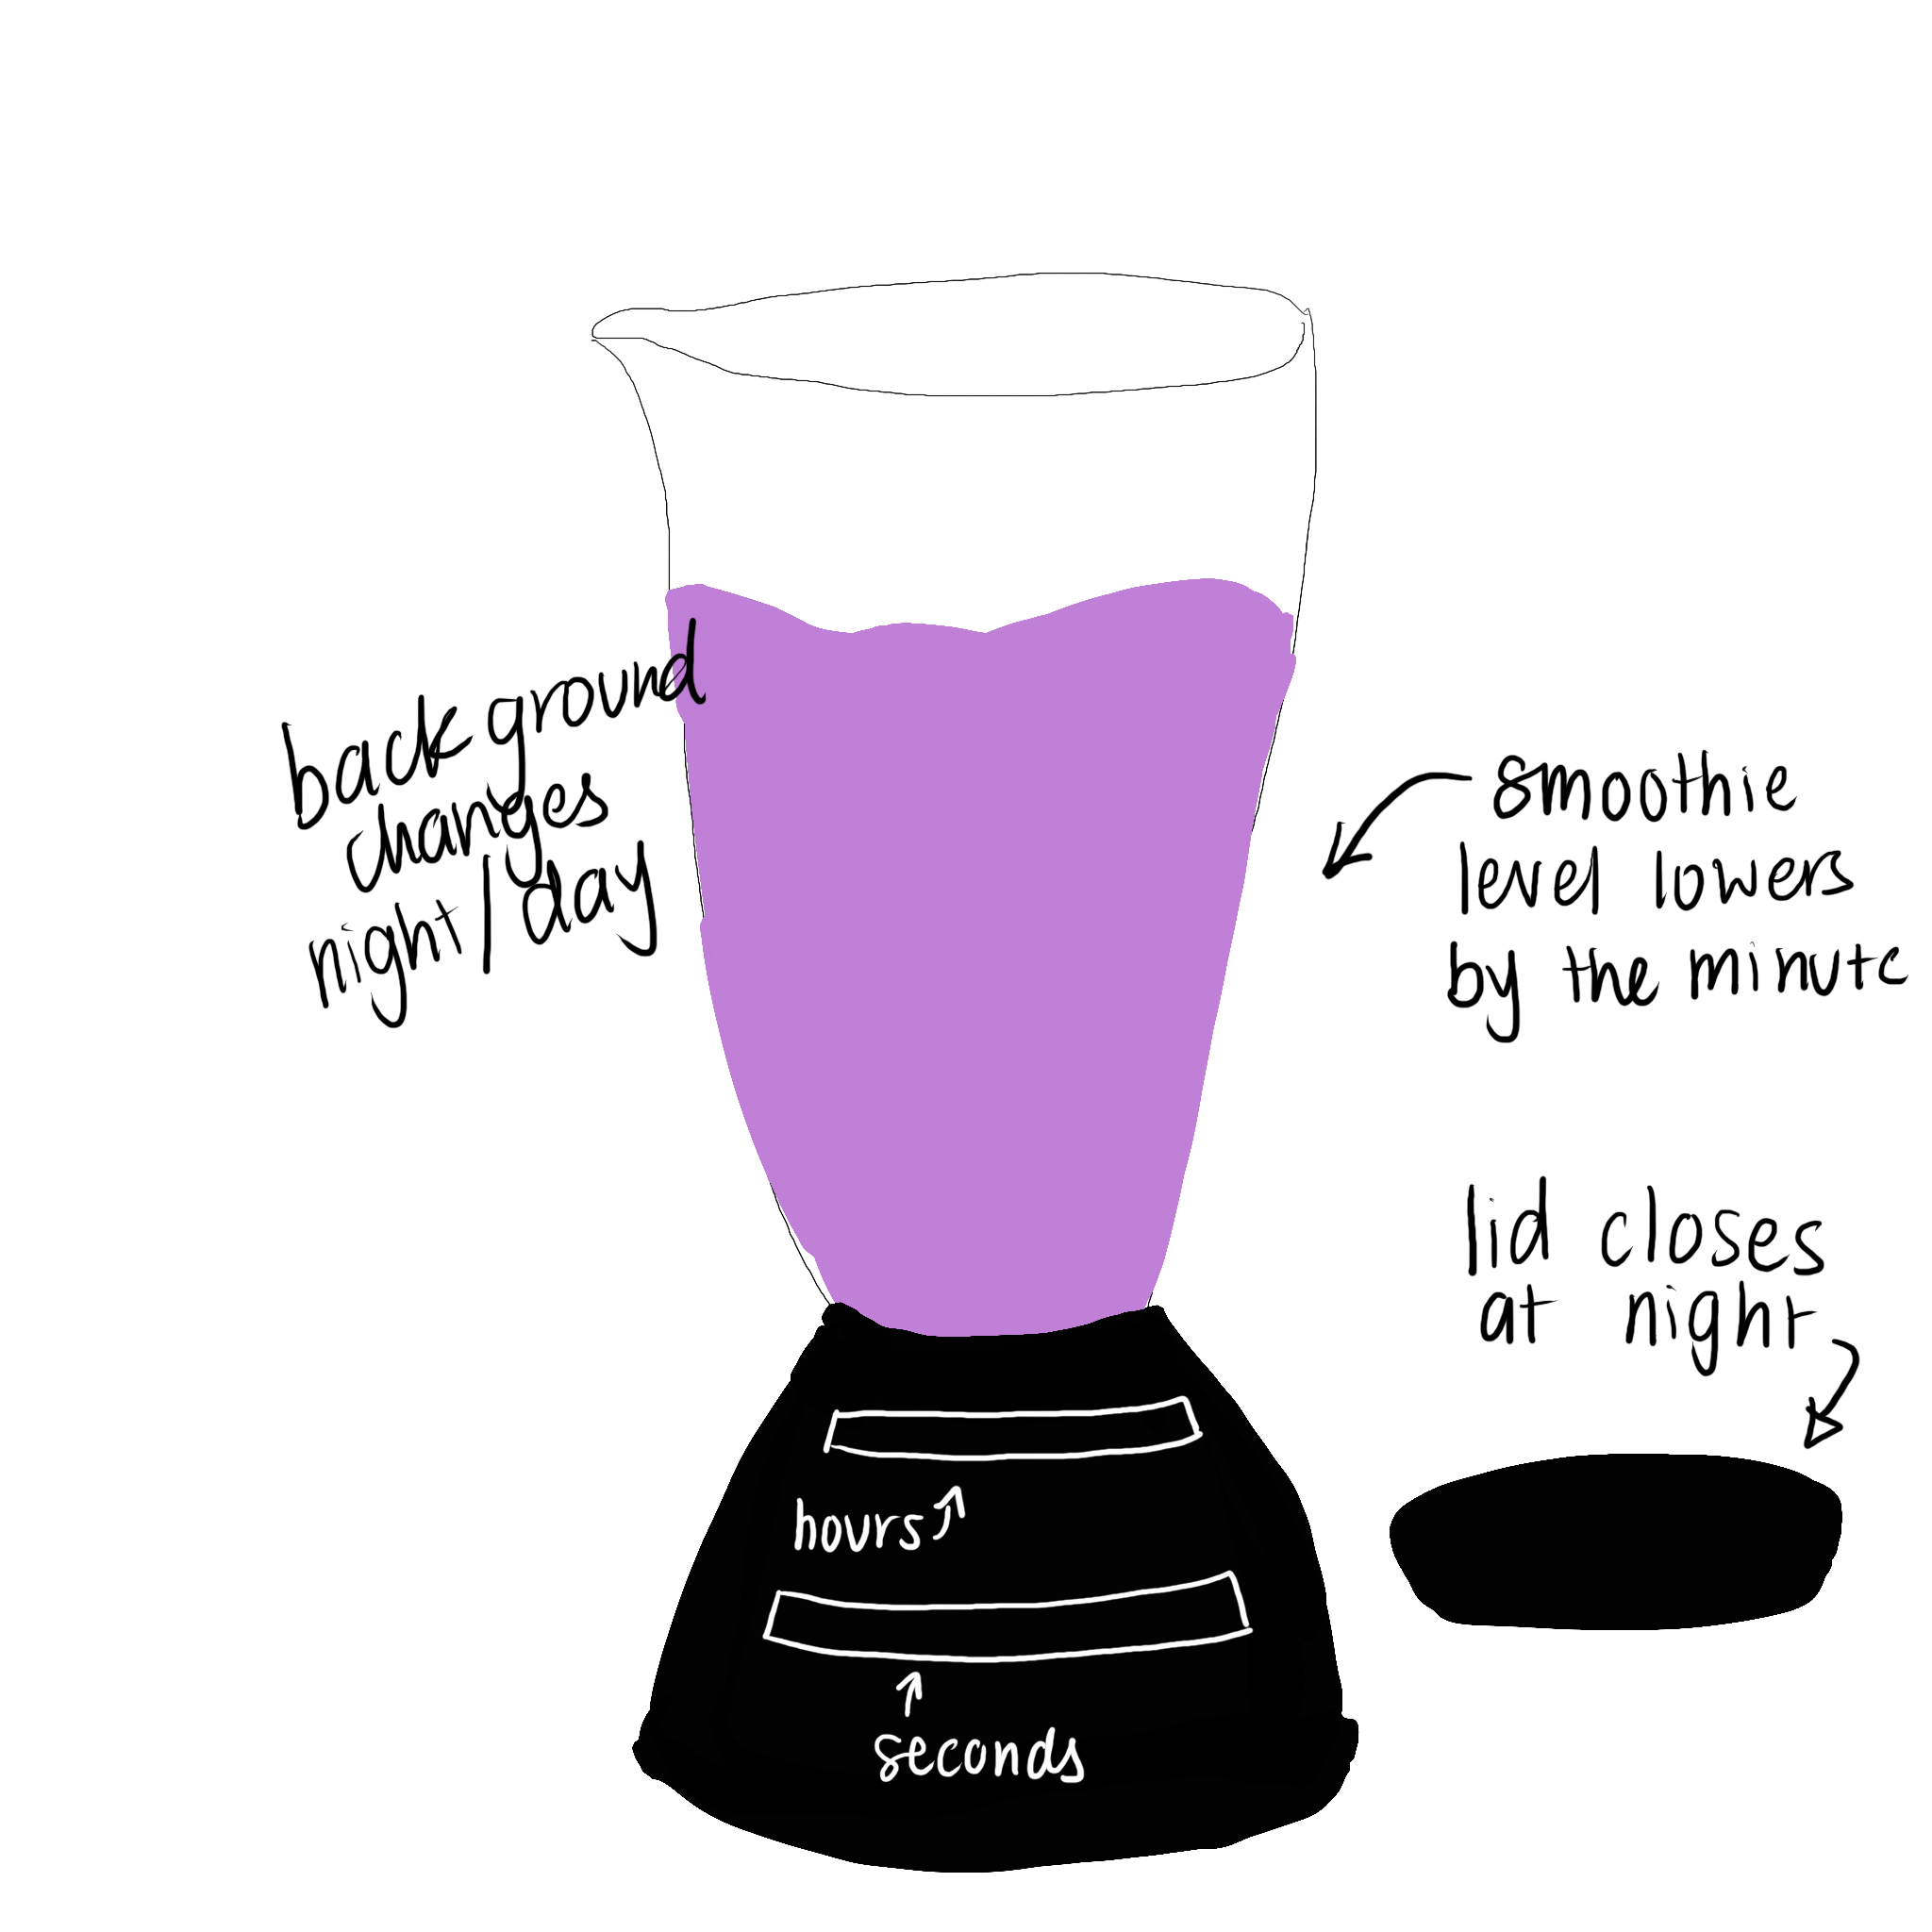 background
changes
night/day
smoothie
level lowers
by the minute
lid closes
at night
hours
seconds